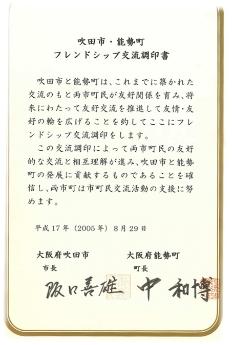 吹田市・能勢町
フレンドシップ交流調印書
吹田市と能勢町は、これまでに築かれた
交流のもと両市町民が友好関係を育み、将
来にわたって友好交流を推進して友情・友
好の輪を広げることを約してここにフレン
ドシップ交流調印をします。
この交流調印によって両市町民の友好
的な交流と相互理解が進み、吹田市と能勢
町の発展に貢献するものであることを確
信し、両市町は市町民交流活動の支援に努
めます。
平成17年（2005）8月29日
大阪府吹田市 大阪府能勢町
市長 町長
阪口善雄 中 和博